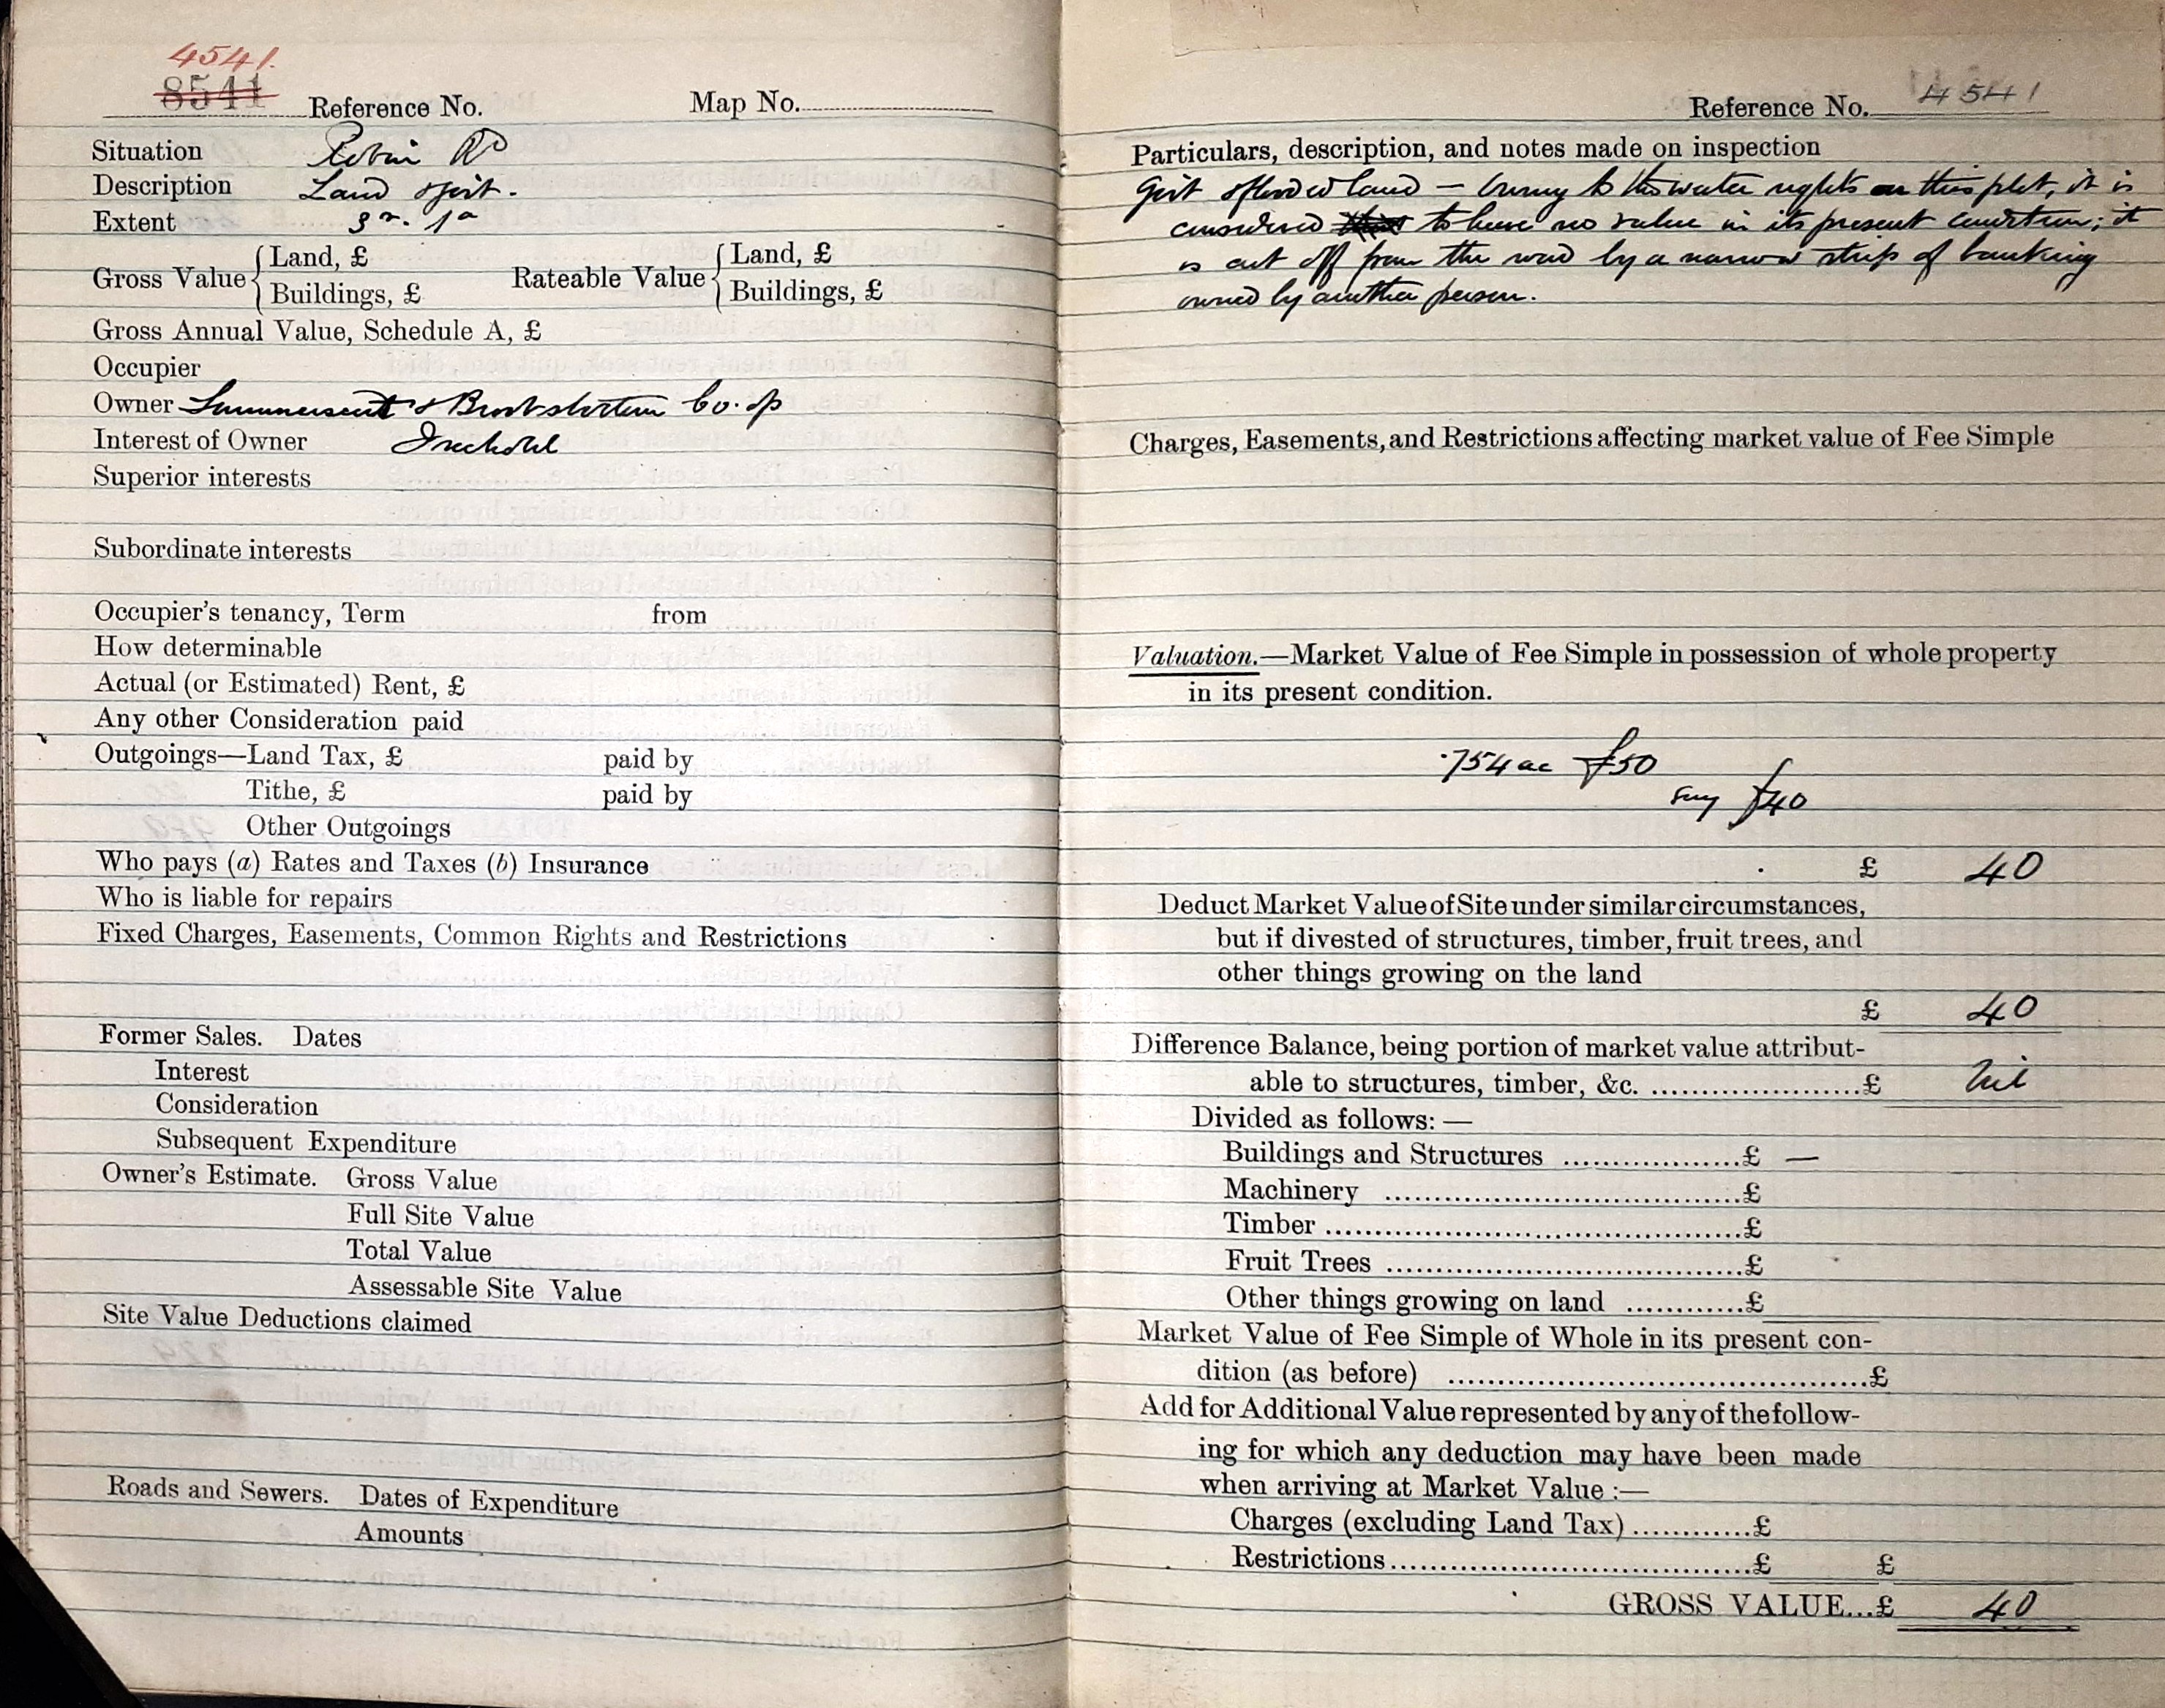 4541.
8541 Reference No. Map No.
Situation Robin Rd
Description Land & pit.
Extent 3r. 1a
Gross Value { Land, £ Rateable Value { Land, £
Buildings, £ Buildings, £
Gross Annual Value, Schedule A, £
Occupier
Owner Summerseat & Brooksbottom Co. op
Interest of Owner Freehold
Superior interests
Subordinate interests
Occupier's tenancy, Term from
How determinable
Actual (or Estimated) Rent, £
Any other Consideration paid
Outgoings—Land Tax, £ paid by
Tithe, £ paid by
Other Outgoings
Who pays (a) Rates and Taxes (b) Insurance
Who is liable for repairs
Fixed Charges, Easements, Common Rights and Restrictions
Former Sales. Dates
Interest
Consideration
Subsequent Expenditure
Owner's Estimate. Gross Value
Full Site Value
Total Value
Assessable Site Value
Site Value Deductions claimed
Roads and Sewers. Dates of Expenditure
Amounts
Reference No. 4541
Particulars, description, and notes made on inspection
land — Owing to the water rights on this plot, it is
considered to have no value in its present condition; it
is cut off from the road by a narrow strip of banking
owned by another person.
Charges, Easements, and Restrictions affecting market value of Fee Simple
Valuation.—Market Value of Fee Simple in possession of whole property
in its present condition.
.754 ac £50
say £40
£ 40
Deduct Market Value of Site under similar circumstances,
but if divested of structures, timber, fruit trees, and
other things growing on the land
£ 40
Difference Balance, being portion of market value attribut-
able to structures, timber, &c. ....................£ Nil
Divided as follows: —
Buildings and Structures ..................£ —
Machinery ....................................£
Timber ..........................................£
Fruit Trees ....................................£
Other things growing on land ............£
Market Value of Fee Simple of Whole in its present con-
dition (as before) ............................................£
Add for Additional Value represented by any of the follow-
ing for which any deduction may have been made
when arriving at Market Value :—
Charges (excluding Land Tax) ............£
Restrictions ....................................£ £
GROSS VALUE...£ 40